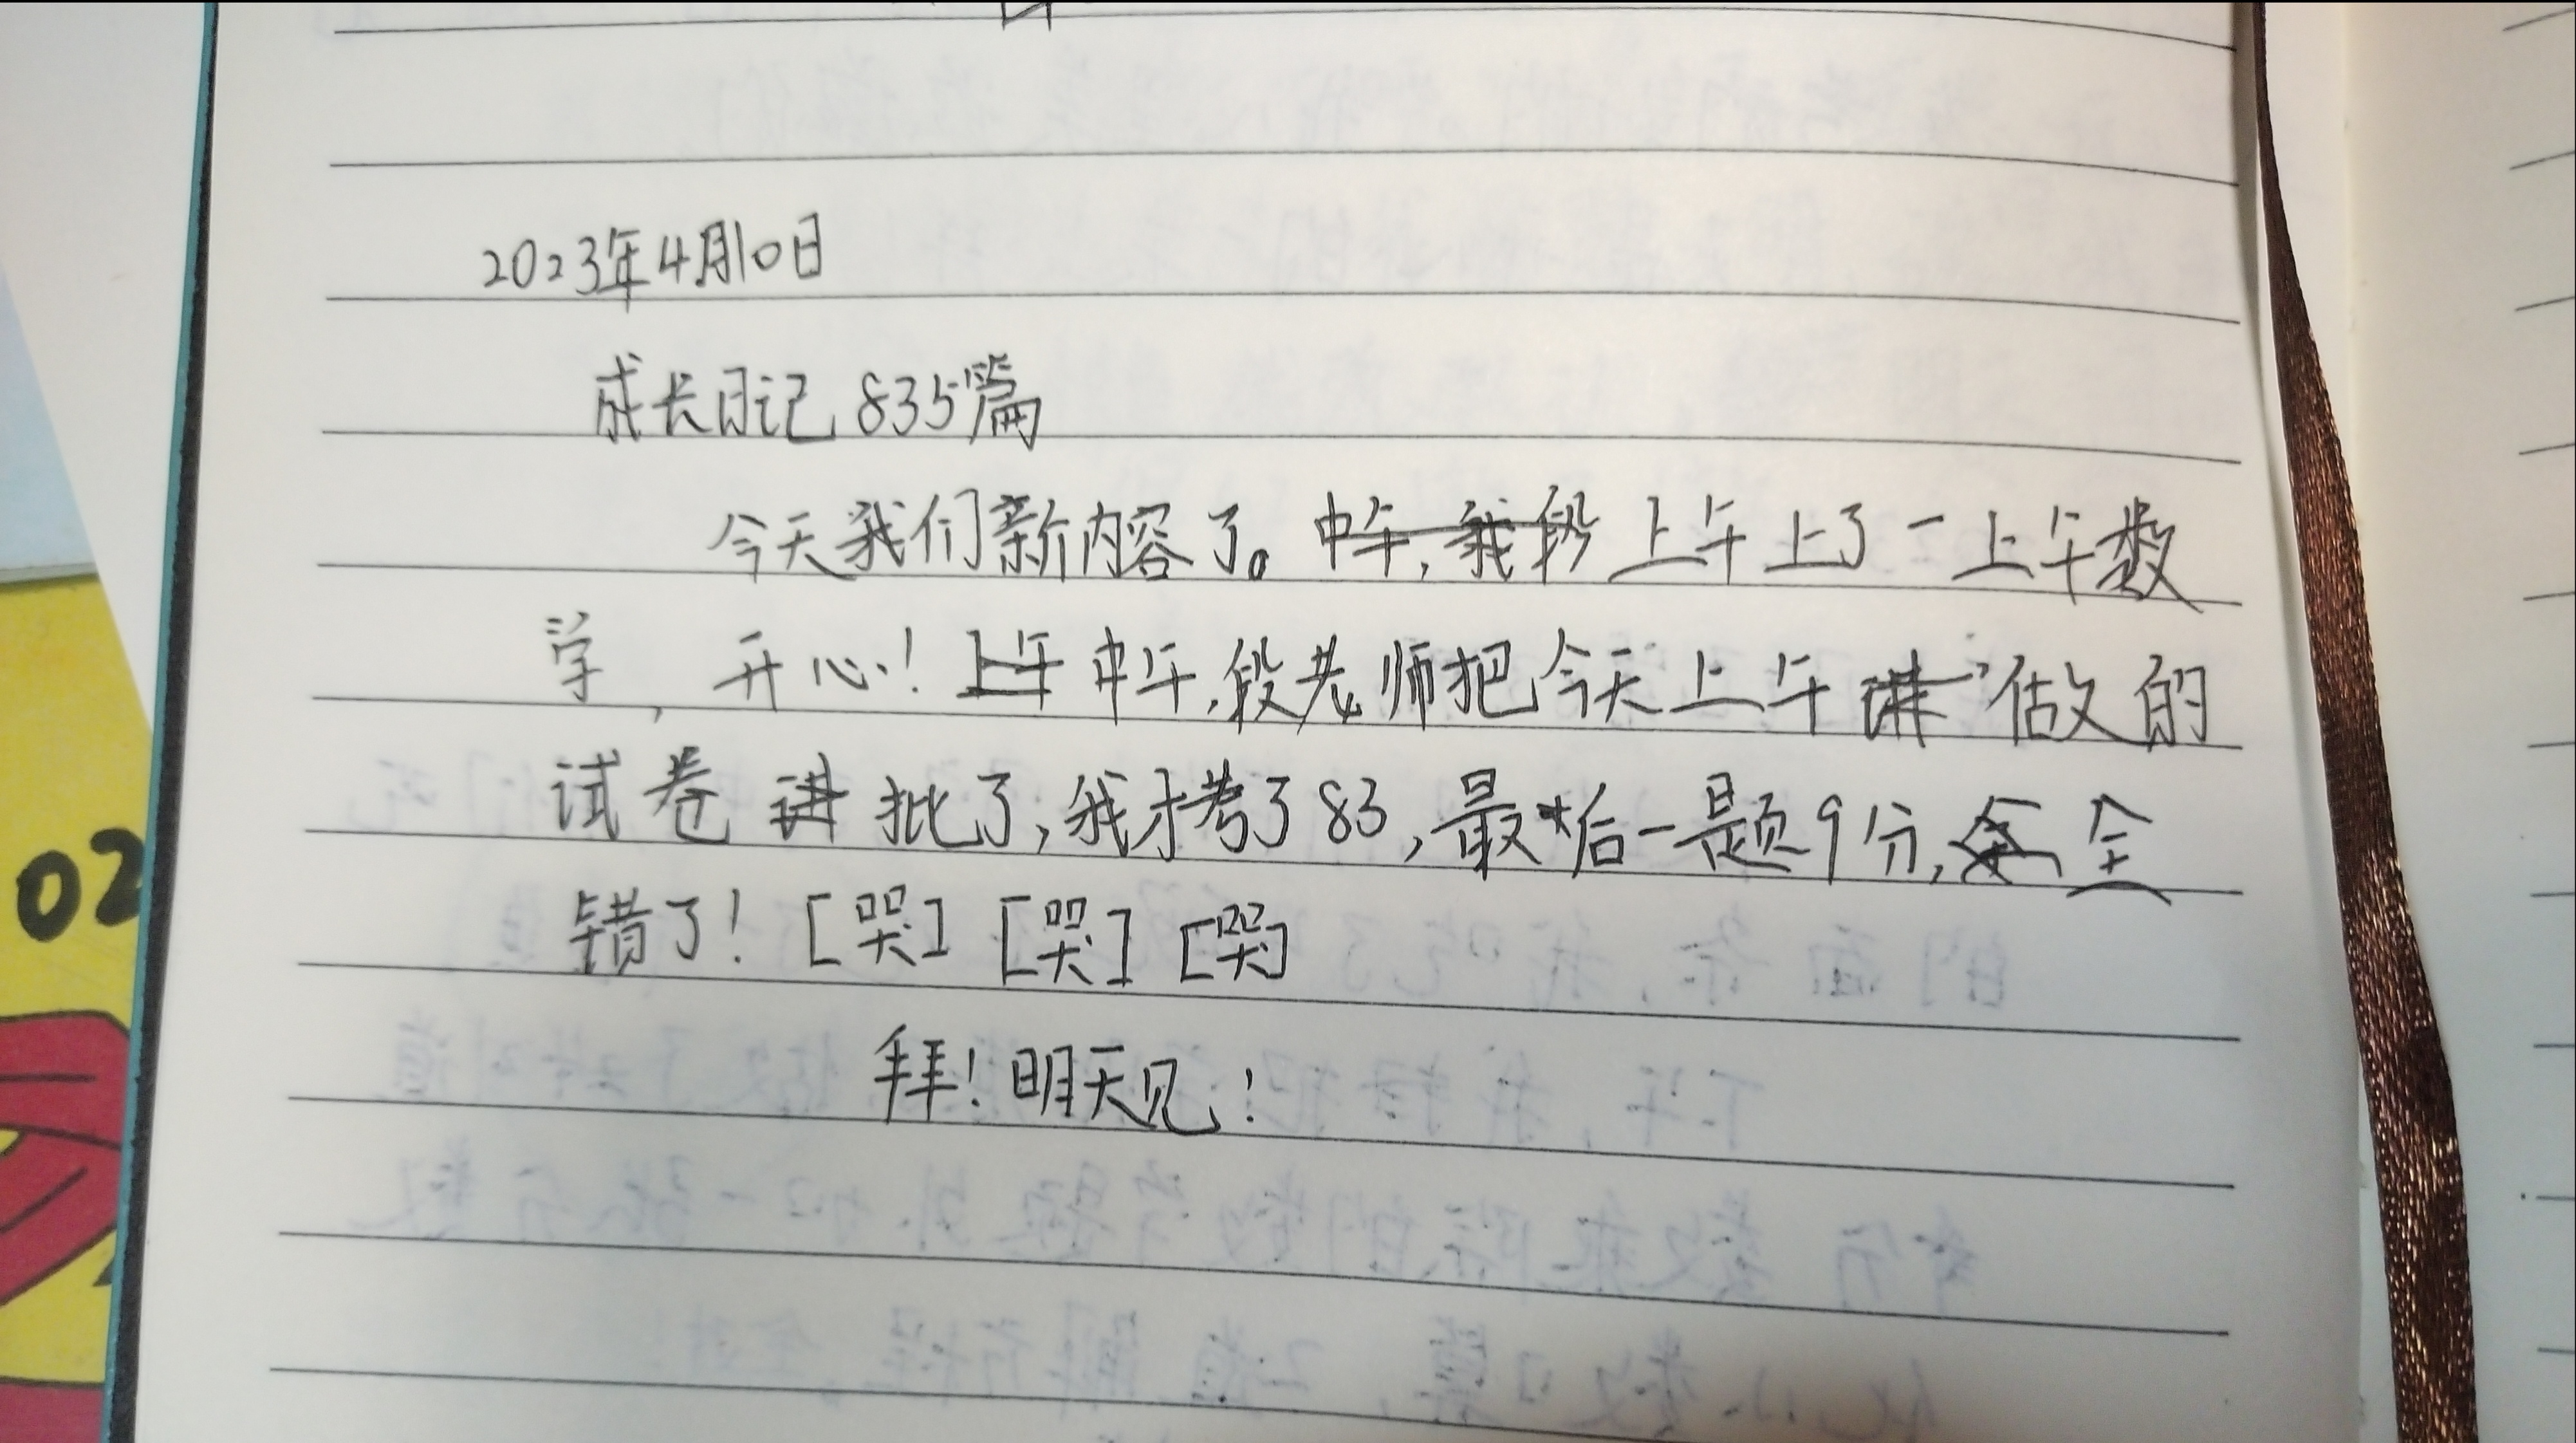 2023年4月10日
成长日记 835篇
今天我们新内容了。中午,我段 上午上了一上午数
学,开心!上午 中午,段老师把今天上午讲 做的
试卷 讲 批了,我才考了83,最后一题9分,全
错了![哭][哭][哭]
拜!明天见!
02